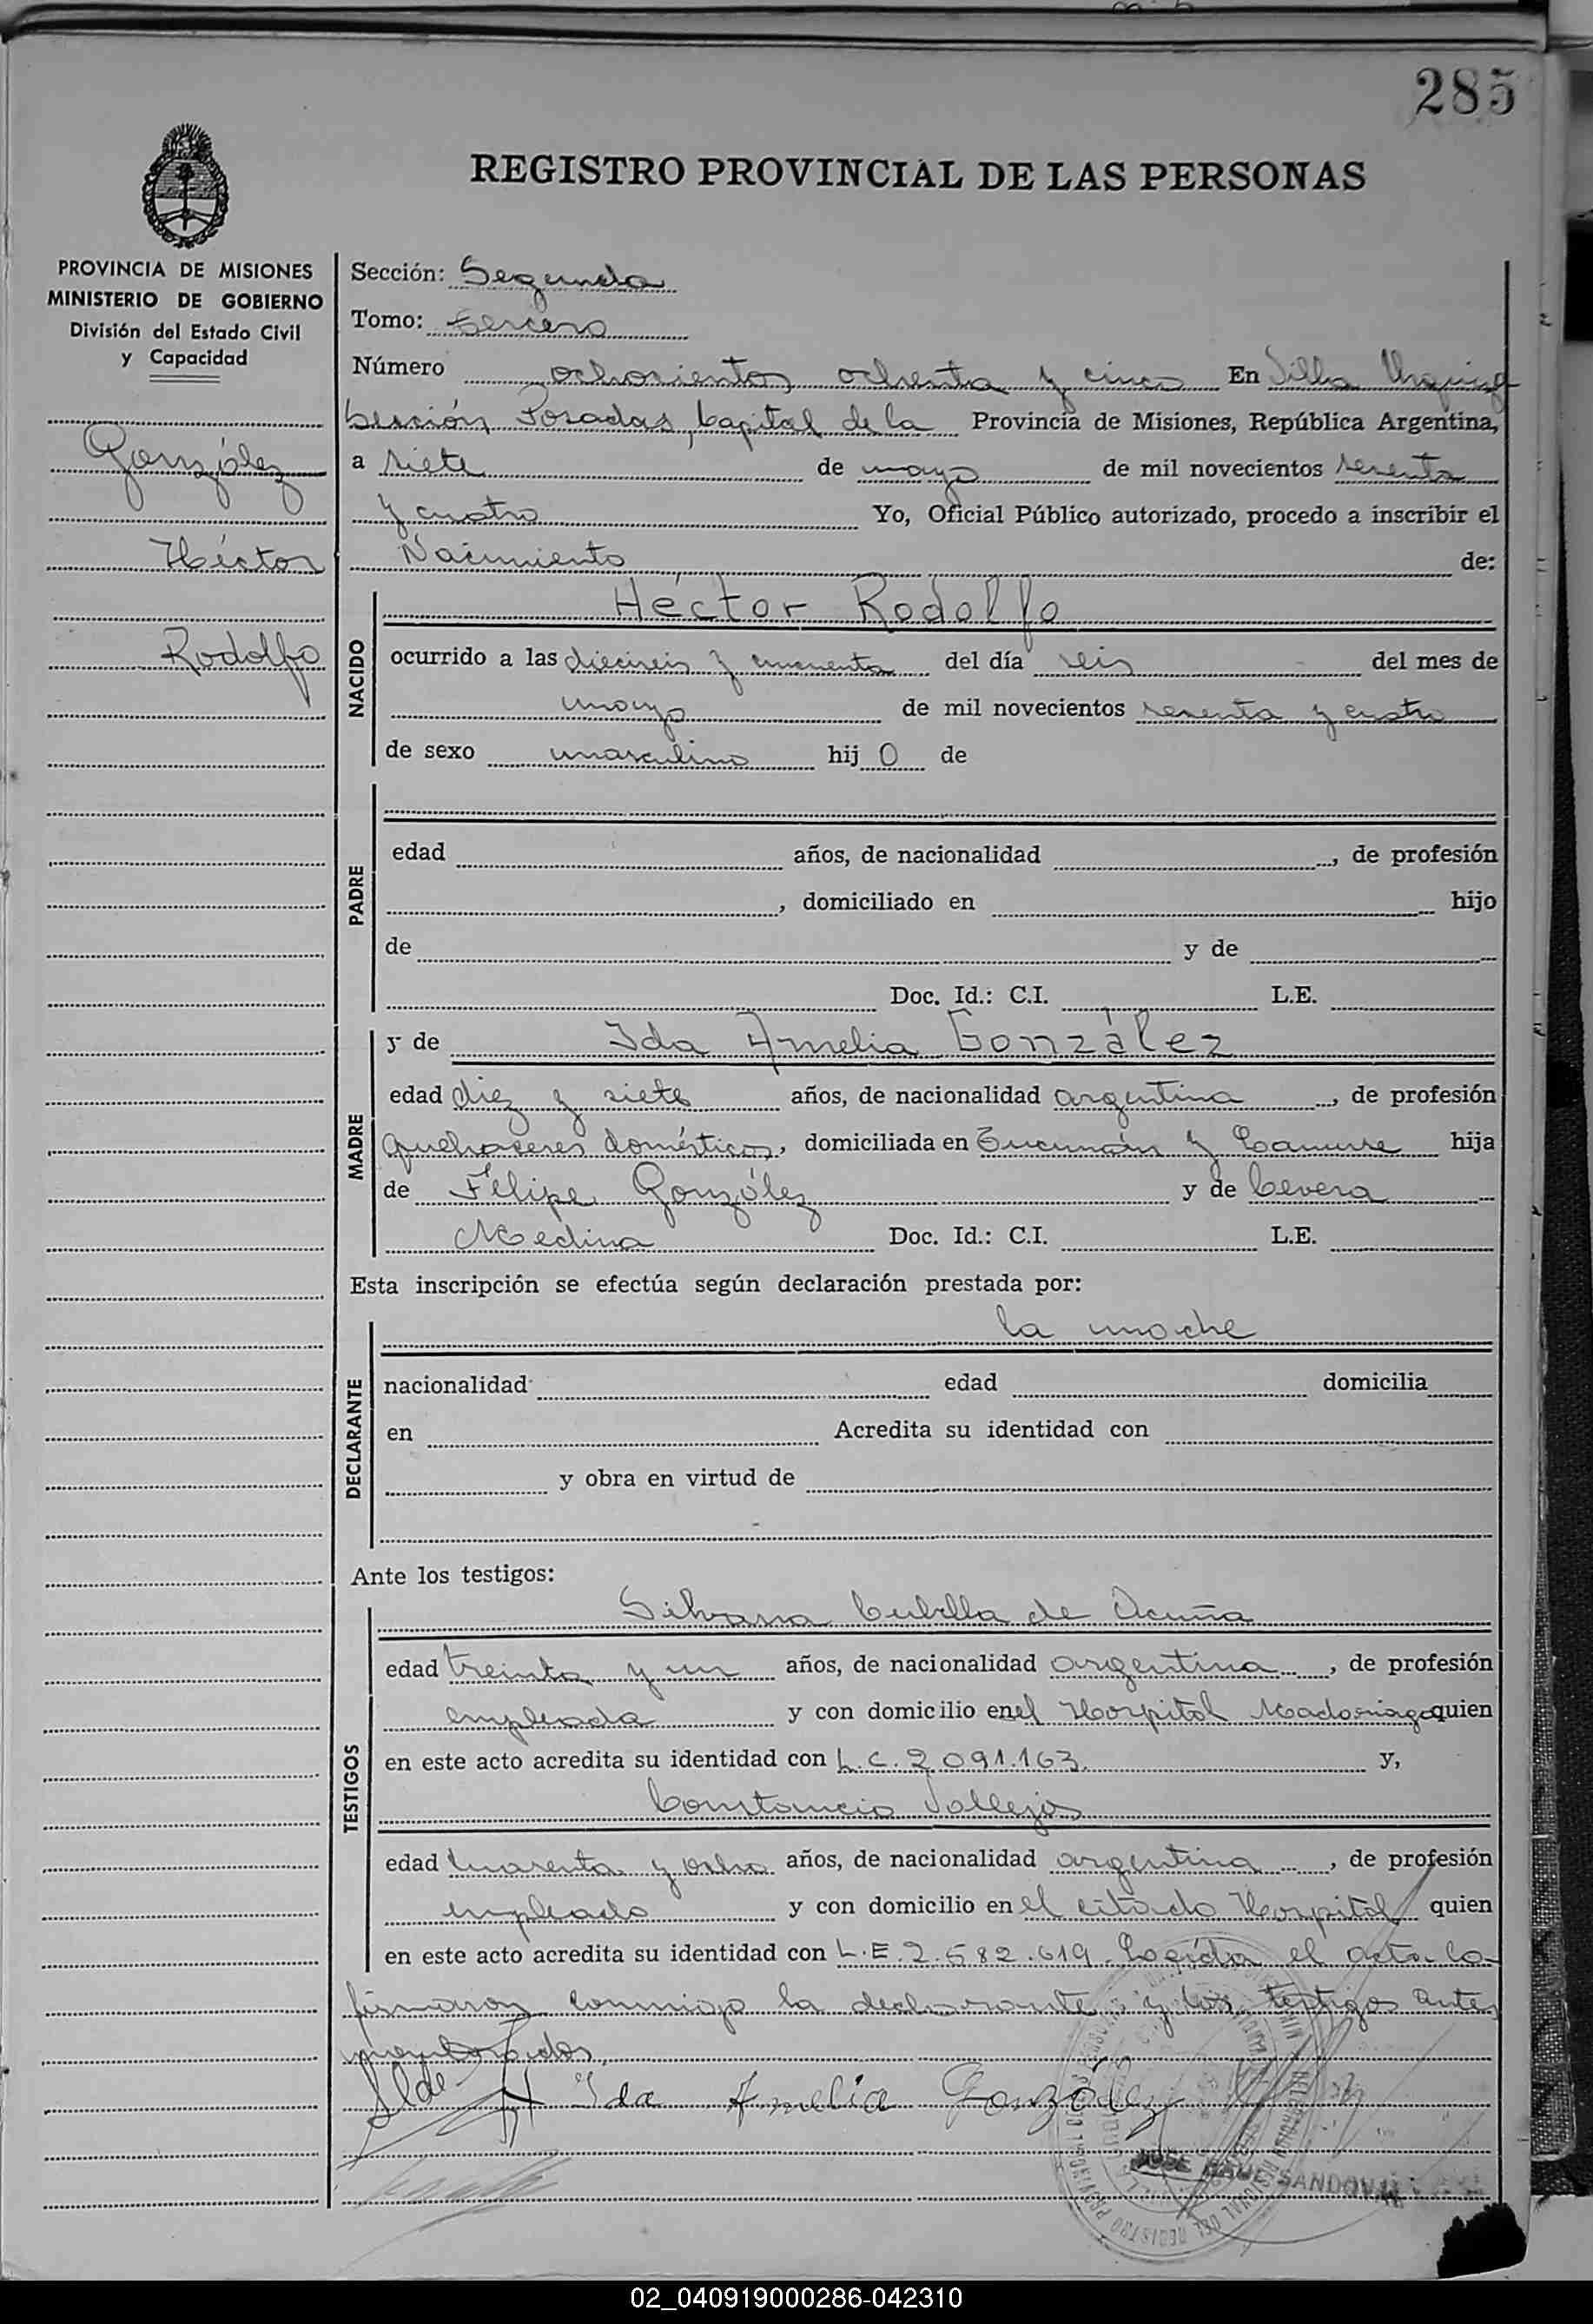 285
REGISTRO PROVINCIAL DE LAS PERSONAS
PROVINCIA DE MISIONES
MINISTERIO DE GOBIERNO
División del Estado Civil
y Capacidad
González
Héctor
Rodolfo
Sección: Segunda
Tomo: tercero
Número ochocientos ochenta y cinco En Villa Urquiza
Sección Posadas, Capital de la Provincia de Misiones, República Argentina,
a siete de mayo de mil novecientos sesenta
y cuatro Yo, Oficial Público autorizado, procedo a inscribir el
Nacimiento de:
NACIDO
Héctor Rodolfo
ocurrido a las dieciseis y cincuenta del día seis del mes de
mayo de mil novecientos sesenta y cuatro
de sexo masculino hij o de
PADRE
edad años, de nacionalidad , de profesión
, domiciliado en hijo
de y de
Doc. Id.: C.I. L.E.
MADRE
y de Ida Amelia González
edad diez y siete años, de nacionalidad argentina , de profesión
quehaceres domésticos, domiciliada en Tucumán y hija
de Felipe González y de
Medina Doc. Id.: C.I. L.E.
Esta inscripción se efectúa según declaración prestada por:
DECLARANTE
la madre
nacionalidad edad domicilia
en Acredita su identidad con
y obra en virtud de
Ante los testigos:
TESTIGOS
Silvana Cubilla de Acuña
edad treinta y un años, de nacionalidad argentina , de profesión
empleada y con domicilio en el Hospital Madariaga quien
en este acto acredita su identidad con L.C. 2.091.163. y,
Constancio Vallejos
edad cuarenta y ocho años, de nacionalidad argentina , de profesión
empleado y con domicilio en el citado Hospital quien
en este acto acredita su identidad con L.E. 2.582.619. Leída el acta la
firmaron conmigo la declarante y los testigos antes
mencionados.
Ida Amelia González
JOSE RAUL SANDOVAL
02_040919000286-042310